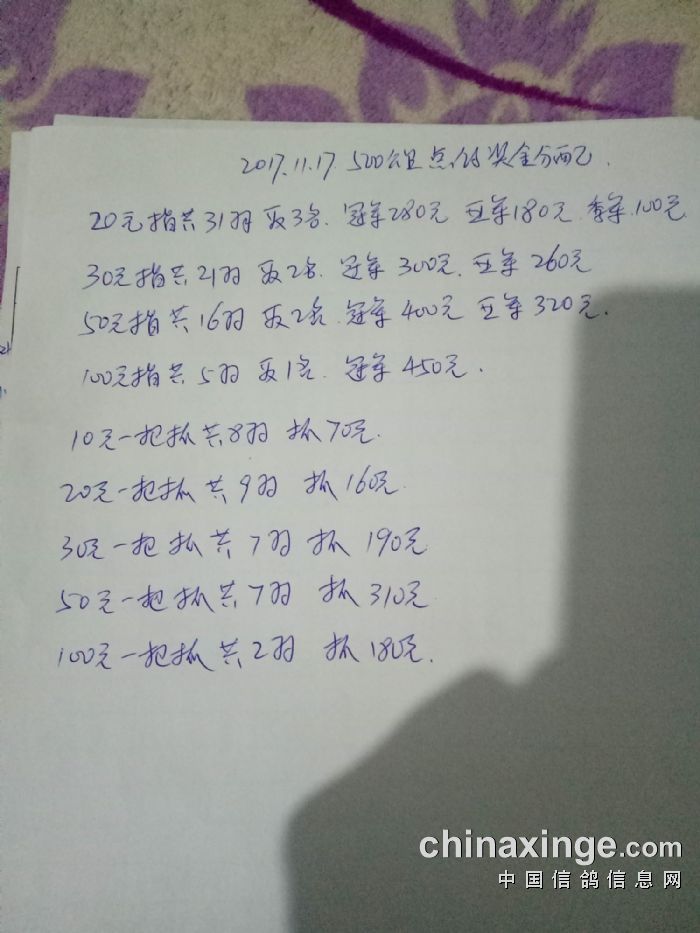 2017.11.17 500公里点付奖金分配
20元指共31羽 取3名. 冠军280元 亚军180元. 季军.100元
30元指共21羽 取2名. 冠军 300元. 亚军 260元
50元指共16羽 取2名. 冠军 400元 亚军 320元.
100元指共5羽 取1名. 冠军 450元.
10元一把抓共8羽 抓70元.
20元一把抓共9羽 抓160元.
30元一把抓共7羽 抓 190元
50元一把抓共7羽 抓 310元
100元一把抓共2羽 抓 180元.
chinaxinge.com
中国信鸽信息网